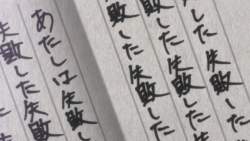 した失敗した
した失敗した失敗した
失敗した失敗した
あたしは失敗した失敗
失敗した失敗